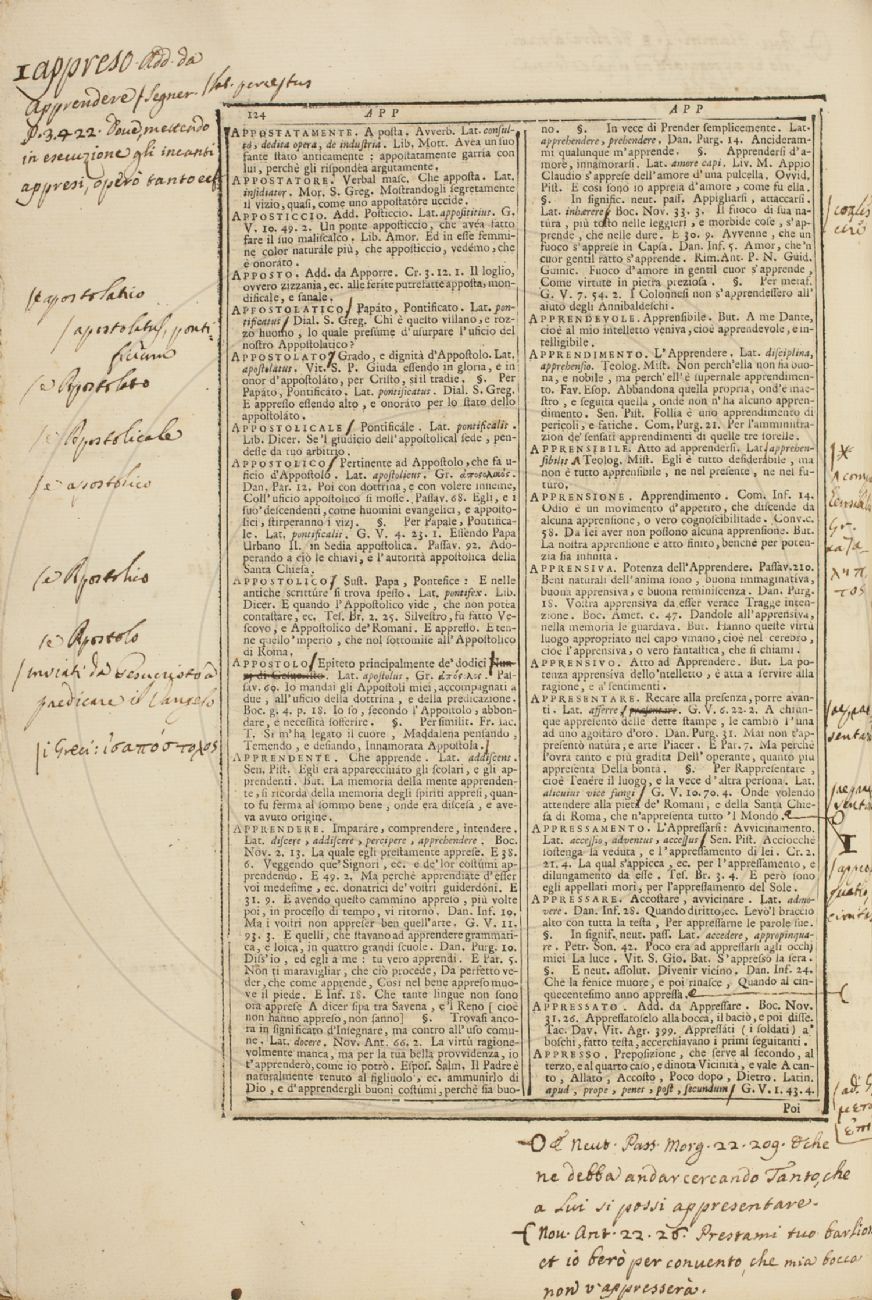 1 appreso. Add. da
apprendere / Segner.
p. 3. 422. Dove, mettendo
in esecuzione gl'incanti
appresi, operò tanto ec.
/e apostolatio
/apostolatus, ponti-
ficium
/e Apostolato
/e Apostolicale
/e apostolico
/e Apostolico
/e Apostolo
/inviati da Gesucristo a
predicare il Vangelo
/i Greci: ἱσαπόστολος
124 APP
APPOSTATAMENTE. A posta. Avverb. Lat. consul-
tò, dedita opera, de industria. Lib. Mott. Avea un suo
fante stato anticamente: appostatamente garria con
lui, perchè gli rispondèa argutamente.
APPOSTATORE. Verbal masc. Che apposta. Lat.
insidiator. Mor. S. Greg. Mostrandogli segretamente
il vizio, quasi, come uno appostatóre uccide.
APPOSTICCIO. Add. Posticcio. Lat. apposititius. G.
V. 10. 49. 2. Un ponte apposticcio, che avéa fatto
fare il suo maliscalco. Lib. Amor. Ed in esse femmi-
ne color naturále più, che apposticcio, vedémo, che
è onoráto.
APPOSTO. Add. da Apporre. Cr. 3. 12. 1. Il loglio,
ovvero zizzania, ec. alle ferite putrefatte apposta, mon-
dificale, e sanale.
APPOSTOLATICO / Papáto, Pontificato. Lat. pon-
tificatus / Dial. S. Greg. Chi è questo villano, e roz-
zo huomo, lo quale presúme d'usurpare l'uficio del
nostro Appostolatico?
APPOSTOLATO / Grado, e dignità d'Appostolo. Lat.
apostolatus. Vit. S. P. Giuda essendo in gloria, e in
onor d'appostoláto, per Cristo, si il tradìe. §. Per
Papáto, Pontificáto. Lat. pontificatus. Dial. S. Greg.
E appresso essendo alto, e onoráto per lo stato dello
appostoláto.
APPOSTOLICALE / Pontificále. Lat. pontificalis.
Lib. Dicer. Se'l giudicio dell'appostolical sede, pen-
desse da tuo arbitrio.
APPOSTOLICO / Pertinente ad Appostolo, che fa u-
ficio d'Appostolo. Lat. apostolicus. Gr. ἀποστολικός.
Dan. Par. 12. Poi con dottrina, e con volere insieme,
Coll'uficio appostolico si mosse. Passav. 68. Egli, e i
suo' descendenti, come huomini evangelici, e apposto-
lici, stirperanno i vizj. §. Per Papale, Pontifica-
le. Lat. pontificalis. G. V. 4. 23. 1. Essendo Papa
Urbano II. in Sedia appostolica. Passav. 92. Ado-
perando a ciò le chiavi, e l'autorità appostolica della
Santa Chiesa.
APPOSTOLICO / Sust. Papa, Pontefice: E nelle
antiche scrittúre si trova spesso. Lat. pontifex. Lib.
Dicer. E quando l'Appostólico vide, che non potéa
contastare, ec. Tes. Br. 2. 25. Silvestro, fu fatto Ve-
scovo, e Appostolico de' Romani. E appresso. E ten-
ne quello 'mperio, che nol sottomise all'Appostolico
di Roma.
APPOSTOLO / Epiteto principalmente de' dodici
Lat. apostolus. Gr. ἀπόστολος. Pas-
sav. 69. Io mandai gli Appostoli miei, accompagnati a
due, all'uficio della dottrina, e della predicazione.
Boc. g. 4. p. 18. Io so, secondo l'Appostolo, abbon-
dare, e necessità sofferire. §. Per similit. Fr. Iac.
T. Si m'ha legato il cuore, Maddalena pensando,
Temendo, e desiando, Innamorata Appostola.
APPRENDENTE. Che apprende. Lat. addiscens.
Sen. Pist. Egli era apparecchiáto gli scolari, e gli ap-
prendenti. But. La memoria della mente apprenden-
te, si ricorda della memoria degli spiriti appresi, quan-
to fu ferma al sommo bene, onde era discesa, e ave-
va avuto origine.
APPRENDERE. Imparáre, comprendere, intendere.
Lat. discere, addiscere, percipere, apprehendere. Boc.
Nov. 2. 13. La quale egli prestamente apprese. E 38.
6. Veggendo que' Signori, ec. e de' lor costúmi ap-
prendendo. E 49. 2. Ma perchè apprendiate d'esser
voi medesime, ec. donatrici de' vostri guiderdóni. E
31. 9. E avendo questo cammino appreso, più volte
poi, in processo di tempo, vi ritorno. Dan. Inf. 10.
Ma i voitri non appreser ben quell'arte. G. V. 11.
93. 3. E quelli, che stavano ad apprendere grammáti-
ca, e loica, in quattro grandi scuole. Dan. Purg. 10.
Diss'io, ed egli a me: tu vero apprendi. E Par. 5.
Non ti maravigliar, che ciò procede, Da perfetto ve-
der, che come apprende, Così nel bene appreso muo-
ve il piede. E Inf. 18. Che tante lingue non sono
ora apprese A dicer sipa tra Savena, e 'l Reno [cioè
non hanno appreso, non sanno] §. Trovasi anco-
ra in significato d'Insegnare, ma contro all'uso comu-
ne. Lat. docere. Nov. Ant. 66. 2. La virtù ragione-
volmente manca, ma per la tua bella provvidenza, io
t'apprenderò, come io potrò. Espos. Salm. Il Padre è
naturalmente tenuto al figliuolo, ec. ammunirlo di
Dio, e d'apprendergli buoni costúmi, perchè sia buo-
APP
no. §. In vece di Prender semplicemente. Lat.
apprehendere, prehendere. Dan. Purg. 14. Ancideram-
mi qualunque m'apprende. §. Apprendersi d'a-
móre, innamorarsi. Lat. amore capi. Liv. M. Appio
Claudio s'apprese dell'amore d'una pulcella. Ovvid.
Pist. E così sono io appresa d'amore, come fu ella.
§. In signific. neut. pass. Appigliarsi, attaccarsi.
Lat. inhærere / Boc. Nov. 33. 3. Il fuoco di sua na-
túra, più tosto nelle leggieri, e morbide cose, s'ap-
prende, che nelle dure. E 30. 9. Avvenne, che un
fuoco s'apprese in Capsa. Dan. Inf. 5. Amor, che'n
cuor gentil ratto s'apprende. Rim. Ant. P. N. Guid.
Guinic. Fuoco d'amore in gentil cuor s'apprende,
Come virtute in pietra preziosa. §. Per metaf.
G. V. 7. 54. 2. I Colonnesi non s'apprendessero all'
aiuto degli Annibaldeschi.
APPRENDEVOLE. Apprensibile. But. A me Dante,
cioè al mio intelletto veniva, cioè apprendevole, e in-
telligibile.
APPRENDIMENTO. L'Apprendere. Lat. disciplina,
apprehensio. Teolog. Mist. Non perch'ella non sia buo-
na, e nobile, ma perch'ell'è supernale apprendimen-
to. Fav. Esop. Abbandona quella propria, ond'è mae-
stro, e seguita quella, onde non n'ha alcuno appren-
dimento. Sen. Pist. Follia è uno apprendimento di
pericoli, e fatiche. Com. Purg. 21. Per l'amministra-
zion de' sensati apprendimenti di quelle tre sorelle.
APPRENSIBILE. Atto ad apprendersi. Lat. apprehen-
sibilis Teolog. Mist. Egli è tutto desiderábile, ma
non è tutto apprensibile, ne nel presente, ne nel fu-
turo.
APPRENSIONE. Apprendimento. Com. Inf. 14.
Odio è un movimento d'appetito, che discende da
alcuna apprensione, o vero cognoscibilitade. Conv. c.
58. Da sei aver non possono alcuna apprensione. But.
La nostra apprensione è atto finito, benchè per poten-
zia sia infinita.
APPRENSIVA. Potenza dell'Apprendere. Passav. 210.
Beni naturali dell'anima sono, buona immaginativa,
buona apprensiva, e buona reminiscenza. Dan. Purg.
18. Vostra apprensiva da esser verace Tragge inten-
zione. Boc. Amet. c. 47. Dandole all'apprensiva,
nella memoria le guardava. But. Hanno queste virtù
luogo appropriato nel capo umano, cioè nel cerebro,
cioè l'apprensiva, o vero fantastica, che si chiami.
APPRENSIVO. Atto ad Apprendere. But. La po-
tenza apprensiva dello 'ntelletto, è atta a servire alla
ragione, e a' sentimenti.
APPRESENTARE. Recare alla presenza, porre avan-
ti. Lat. afferre / presentare. G. V. 6. 22. 2. A chiun-
que appresentò delle dette stampe, le cambiò l'una
ad uno agostáro d'oro. Dan. Purg. 31. Mai non t'ap-
presentò natúra, e arte Piacer. E Par. 7. Ma perchè
l'ovra tanto è più gradita Dell'operante, quanto più
appresenta Della bontà. §. Per Rappresentare,
cioè Tenére il luogo, e la vece d'altra persona. Lat.
alicuius vice fungi / G. V. 10. 70. 4. Onde volendo
attendere alla pietà de' Romani, e della Santa Chie-
sa di Roma, che n'appresenta tutto 'l Mondo.
APPRESSAMENTO. L'Appressarsi: Avvicinamento.
Lat. accessio, adventus, accessus / Sen. Pist. Acciocchè
sostenga la veduta, e l'appressamento di lei. Cr. 2.
21. 4. La qual s'appicca, ec. per l'appressamento, e
dilungamento da esse. Tes. Br. 3. 4. E però sono
egli appellati mori, per l'appressamento del Sole.
APPRESSARE. Accostare, avvicinare. Lat. admo-
vere. Dan. Inf. 28. Quando diritto, ec. Levò 'l braccio
alto con tutta la testa, Per appressarne le parole sue.
§. In signif. neut. pass. Lat. accedere, appropinqua-
re. Petr. Son. 42. Poco era ad appressarsi agli occhj
miei La luce. Vit. S. Gio. Bat. S'appressò la sera.
§. E neut. assolut. Divenir vicino. Dan. Inf. 24.
Che la fenice muore, e poi rinasce, Quando al cin-
quecentesimo anno appressa.
APPRESSATO. Add. da Appressare. Boc. Nov.
31. 26. Appressatoselo alla bocca, il baciò, e poi disse.
Tac. Dav. Vit. Agr. 399. Appressáti (i soldati) a'
boschi, fatto testa, accerchiavano i primi seguitanti.
APPRESSO. Preposizione, che serve al secondo, al
terzo, e al quarto caso, e dinota Vicinità, e vale A can-
to, Allato, Accosto, Poco dopo, Dietro. Latin.
apud, prope, penes, post, secundum / G. V. 1. 43. 4.
Poi
O E Neut. Pass. Morg. 22. 209. E che
ne debba andar cercando Tanto, che
a Lui si possi appresentare.
{ Nov. Ant. 22. 26. Prestami tuo barlio
et io berò per convento, che mia bocca
non v'appresserà.